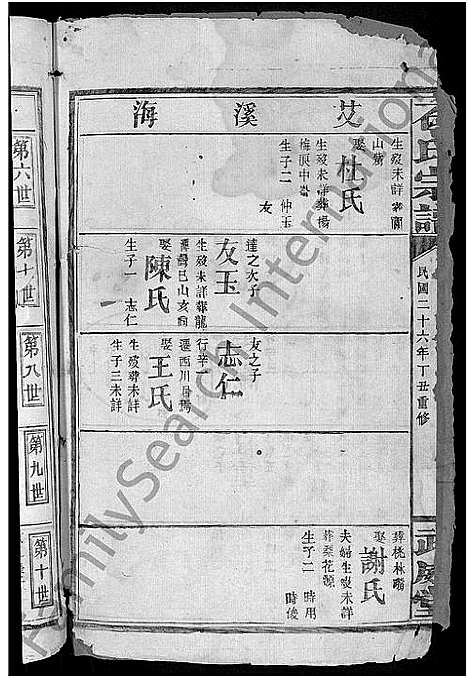 石氏宗譜
民國二十六年丁丑重修
武威堂
艾溪海
生歿未詳
山
娶杜氏
生歿未詳葬楊
生子二 仲玉
友
達之次子
友玉
生歿未詳葬龍
巳山亥向
娶陳氏
生子一 志仁
友之子
志仁
行辛一
遷西川
娶王氏
生歿葬未詳
生子三未詳
葬桃林嘴
娶謝氏
夫婦生歿未詳
葬梨花源
生子二 時用
時俊
第六世
第七世
第八世
第九世
第十世
FamilySearch International